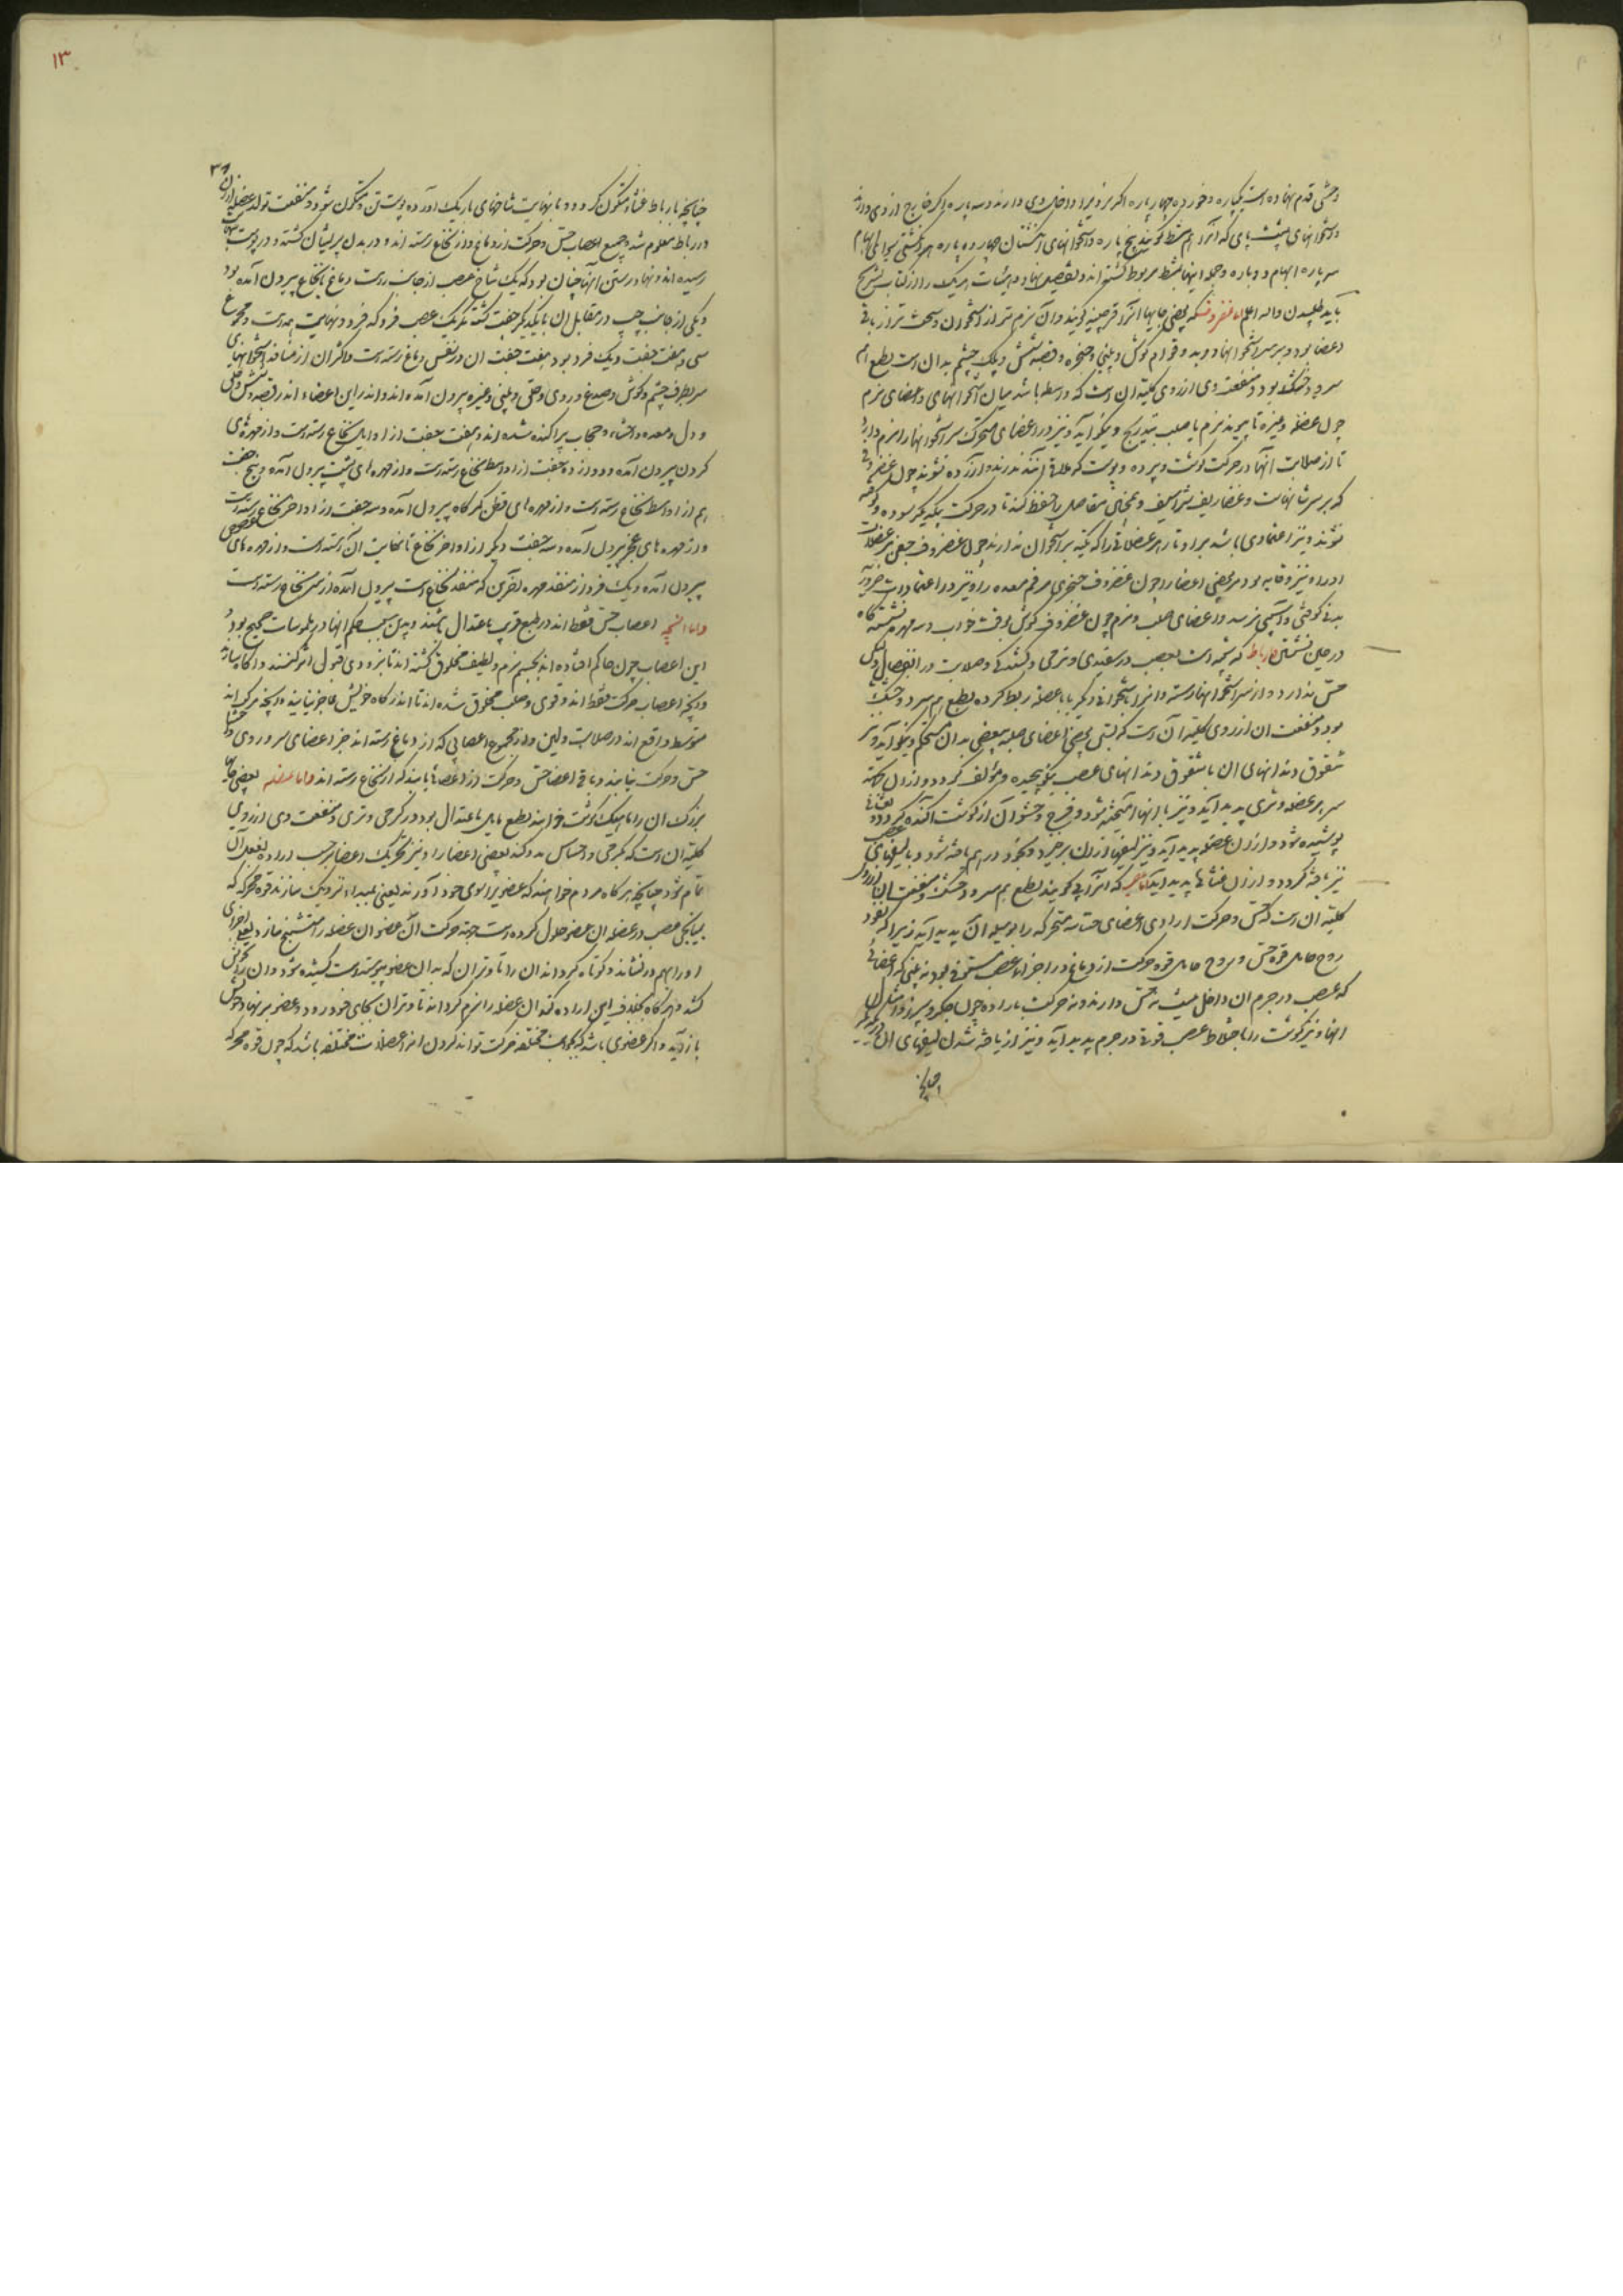 وحشی قدم نهاده است یکپاره و خورده چهار پاره اگر نرد را داخل وی دارند و سه پاره اگر خارج از وی دارند
و استخوانهای پشت پای که آنرا مشط گویند پنج پاره و استخوانهای انگشتان چهارده پاره هر انگشتی سوای ابهام
سه پاره ابهام دو پاره و جمله اینها بمشط مربوط گشته اند و تفصیل نهاد و هیئات هر یک را از کتاب تشریح
باید طلبیدن والله اعلم اما غضروف که بعضی جایها آنرا قرچینه گویند و آن نرم تر از استخوان و سخت تر از باقی
اعضا بود و بر سر استخوانها روید و قوام گوش و بینی و حنجره و قصبه شش و پلک چشم بدان است بطبع هم
سرد و خشک بود و منفعت وی از روی کلیت آن است که واسطه باشد میان استخوانهای و اعضای نرم
چون عضله و غیره تا پیوند نرم با صلب بتدریج و نیکو آید و نیز در اعضای متحرک سر استخوانها را نرم دارد
تا از صلابت آنها در حرکت گوشت و پرده و پوست که ملاقی آنند ندرند و آزرده نشوند چون غضروفی
که بر سر شانهاست و غضاریف شراسیف و همچنین مفاصل را حفظ کند تا در حرکت بیکدیگر سوده و کوفته
نشوند و نیز اعتمادی باشد بر اوتار مر عضلاتی را که تکیه بر استخوان ندارند چون غضروف جفن مر عضلات
او را و نیز وقایه بود مر بعضی اعضا را چون غضروف خنجری مر فم معده را و نیز در اعتمادات ضروریه
بدنی کوفتی و آسیبی نرسد و اعضای صلب و نرم چون غضروف گوش بوقت خواب و سه مهره نشستگاه
در حین نشستن اما رباط که پنجه است بعصب در سفیدی و نرمی و کشندگی و صلابت در انفصال و لیکن
حس ندارد و از سر استخوانها رسته و آنرا با استخوانی دیگر یا با عضله ربط کرده بطبع هم سرد و خشک
بود و منفعت آن از روی کلیت آن است که بستن بعضی اعضای صلبه ببعضی بدان مستحکم و نیکو آید و نیز
شقوق دندانهای آن با شقوق دندانهای عصب نیکو پیچیده و مؤلف گردد و از آن نکته
سر بر عضله وتری پدید آید و نیز با آنها آمیخته شود و فرج و حشو آن از گوشت آکنده گردد و بغشائی
پوشیده شود و از آن عضو پدید آید و نیز لیفها از آن برخیزد و بگردد در هم بافته شود و با لیفهای عصب
نیز بافته گردد و از آن غشائها پدید آید اما عصب که آنرا پی گویند بطبع هم سرد و خشک و منفعت آن از روی
کلیت آن است که حس و حرکت ارادی اعضای حساسه متحرکه را بوسیله آن پدید آید زیرا که نفوذ
روح حامل قوه حس و روح حامل قوه حرکت از دماغ در اجزا اما عصب مستوفی بود نه بینی که اعضائی
که عصب در جرم آن داخل نیست نه حس دارند و نه حرکت باراده چون جگر و سپرز و امثال آن
آنها و نیز گوشت را با اختلاط عصب قوتی در جرم پدید آید و نیز از بافته شدن لیفهای آن
چنانچه
۱۳
چنانچه با رباط غشاء متکون گردد و با نهایت شاخهای باریک آورده پوست تن متکون شود و منفعت تولد عضله از آن
و رباط معلوم شد و جمیع اعصاب حس و حرکت از دماغ و از نخاع رسته اند و در بدن پریشان گشته و در پوست
رسیده اند و نهاد رستن آنها چنان بود که یک شاخ عصب از جانب راست دماغ یا نخاع بیرون آمده بود
و یکی از جانب چپ در مقابل آن با یکدیگر جفت گشته مگر یک عصب فرد که فرد و نهایت همه است و مجموع
سی و هفت جفت و یک فرد بود هفت جفت آن از نفس دماغ رسته است و اکثر آن از منافذ استخوانهای
سر بطرف چشم و گوش و صدغ و روی و حلق و بینی و غیره بیرون آمده اند و اندر این اعضاء اندر قصبه شش و حلق
و دل و معده و احشاء و حجاب پراکنده شده اند و هفت جفت از اوایل نخاع رسته است و از مهره های
گردن بیرون آمده و دوازده جفت از اواسط نخاع رسته است و از مهره های پشت بیرون آمده و پنج جفت
هم از اواسط نخاع رسته است و از مهره های قطن کمرگاه بیرون آمده و سه جفت از اواخر نخاع رسته است
و از مهره های عجز بیرون آمده و سه جفت دیگر از اواخر نخاع تا نهایت آن رسته است و از مهره های عصعص
بیرون آمده و یک فرد از منفذ مهره آخرین که منفذ نخاع است بیرون آمده از سر نخاع رسته است
و اما آنچه اعصاب حس فقط اند در طبع قریب باعتدال باشند و بدین سبب حکم آنها در ملموسات صحیح بود
این اعصاب چون حاکم افتاده اند بجسم نرم و لطیف مخلوق گشته اند تا بزودی قبول اثر کنند و آگاه سازند
و آنچه اعصاب حرکت فقط اند و قوی و صلب مخلوق شده اند تا اندر کار خویش عاجز نیایند و آنچه مرکب اند
متوسط واقع اند در صلابت و لین و از مجموع اعصابی که از دماغ رسته اند جز اعضای سر و روی و احشا
حس و حرکت نیابند و باقی اعضا حس و حرکت از اعصابی یابند که از نخاع رسته اند و اما عضله بعضی جایها
بزرگ آن را ماهیچک گوشت خوانند بطبع مایل باعتدال بود در گرمی و تری و منفعت وی از روی
کلیت آن است که بگرمی و احساس مدد کند بعضی اعضا را و نیز تحریک اعضا بر حسب اراده بفعل آن
تمام شود چنانچه هر گاه مردم خواهند که عضویرا سوی خود آورند یعنی بمبداء نزدیک سازند قوه محرکه که
بیانجی عصب در عضله آن عضو حلول کرده است جهة حرکت آن عضو آن عضله را متشنج سازد یعنی اجزای
او را بهم درنشاند و کوتاه گرداند آن را تا وتر آن که بدان عضو پیوسته است کشیده شود و آن را بخویش
کشد و هر گاه بخلاف این اراده کند آن عضله را نرم گرداند تا وتر آن بجای خود رود و عضو بر نهاد خویش
باز آید و اگر عضوی باشد که بجهات مختلفه حرکت تواند کردن آنرا عضلات مختلفه باشد که چون قوه محرکه